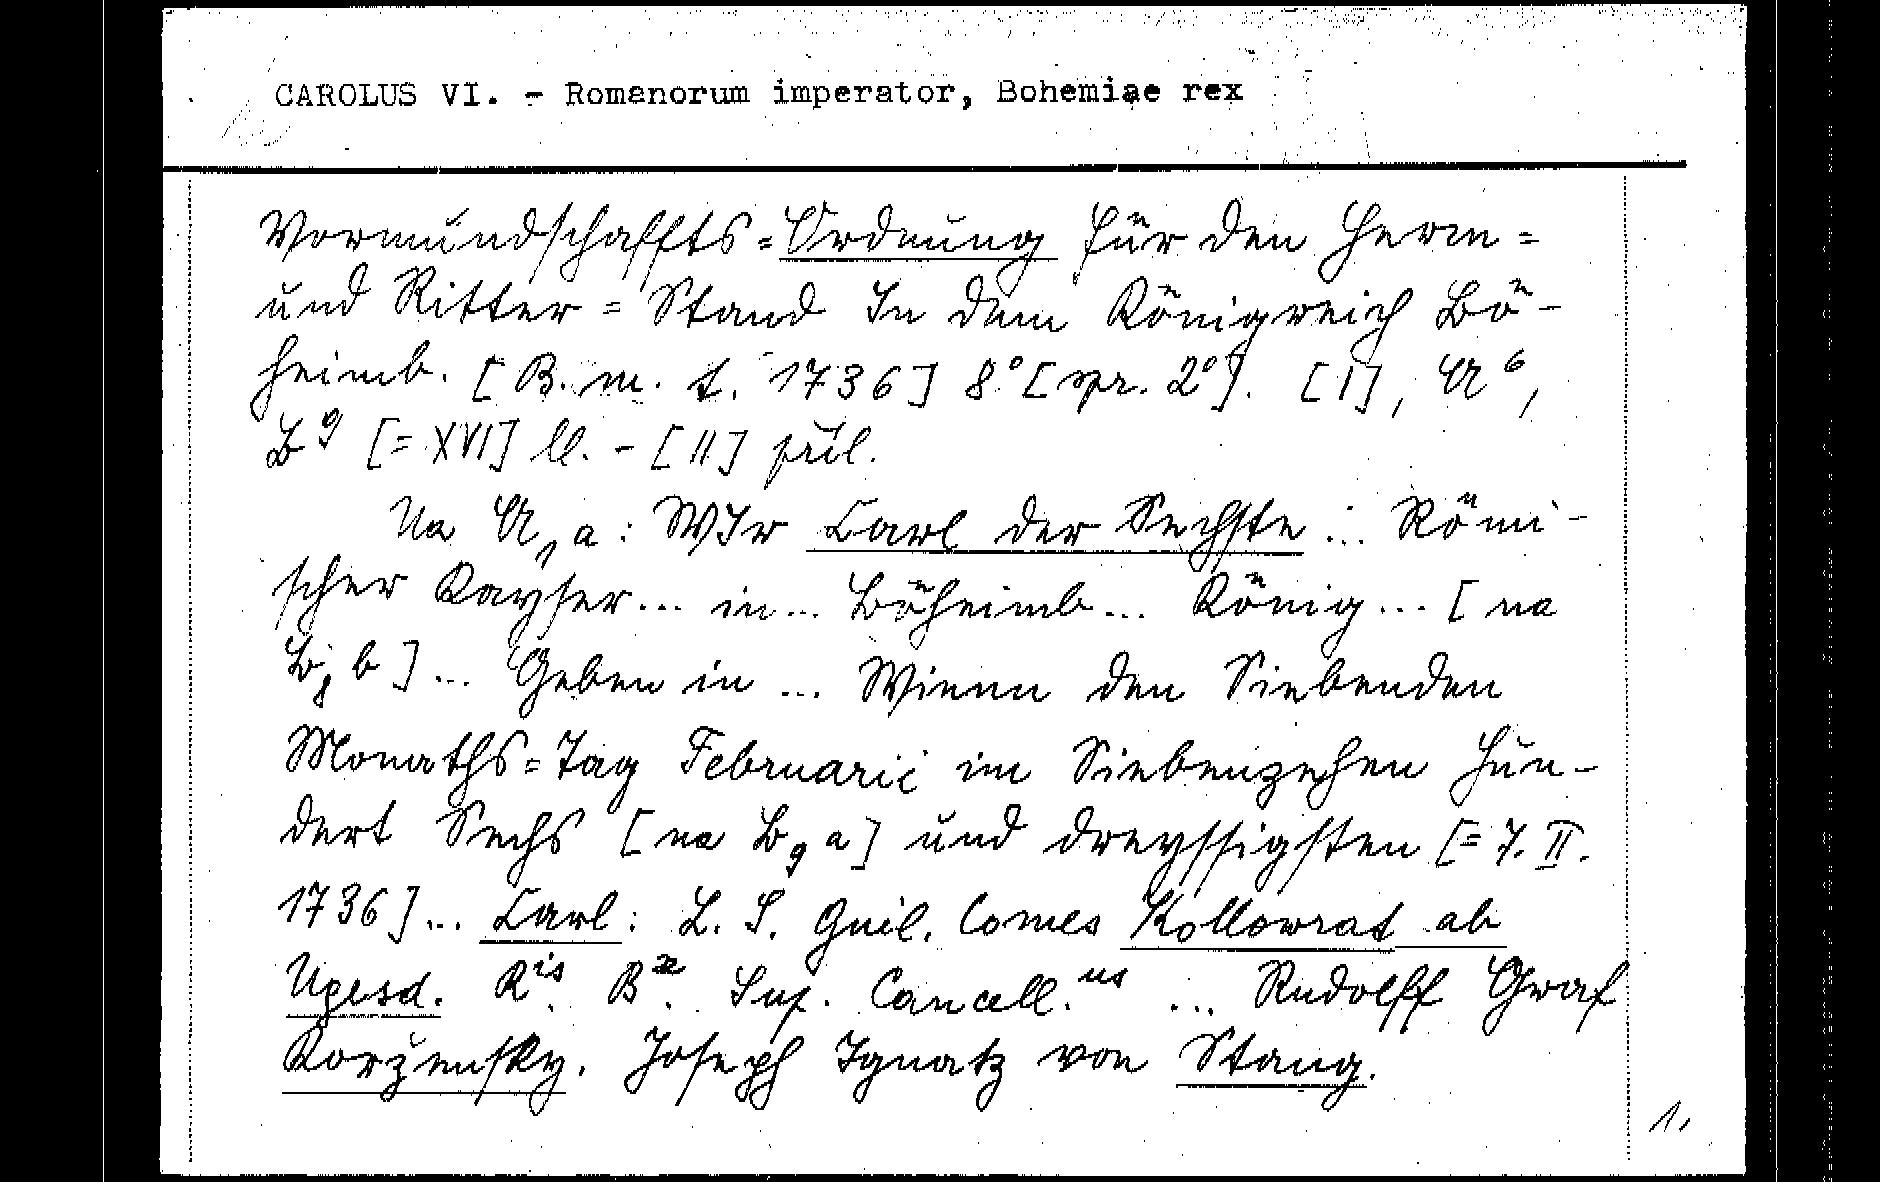 CAROLUS VI. - Romanorum imperator, Bohemiae rex
Vormundschaffts=Ordnung für den Herrn=
und Ritter=Stand In dem Königreich Bö-
heimb. [B. m. t. 1736] 8° [spr. 2°]. [I], A⁶,
B⁹ [= XVI] ll. - [II] příl.
Na A₁a: WIr Carl der Sechste ... Römi-
scher Kayser... in... Böheimb... König... [na
B₈b]... Geben in ... Wienn den Siebenden
Monaths=Tag Februarii im Siebenzehen Hun-
dert Sechs [na B₉a] und dreyssigsten [= 7. II.
1736]... Carl: L. S. Guil. Comes Kollowrat ab
Ugesd. Rⁱˢ. Bæ. Sup. Cancell.ᵘˢ ... Rudolff Graf
Koržensky. Joseph Ignatz von Stang.
1.